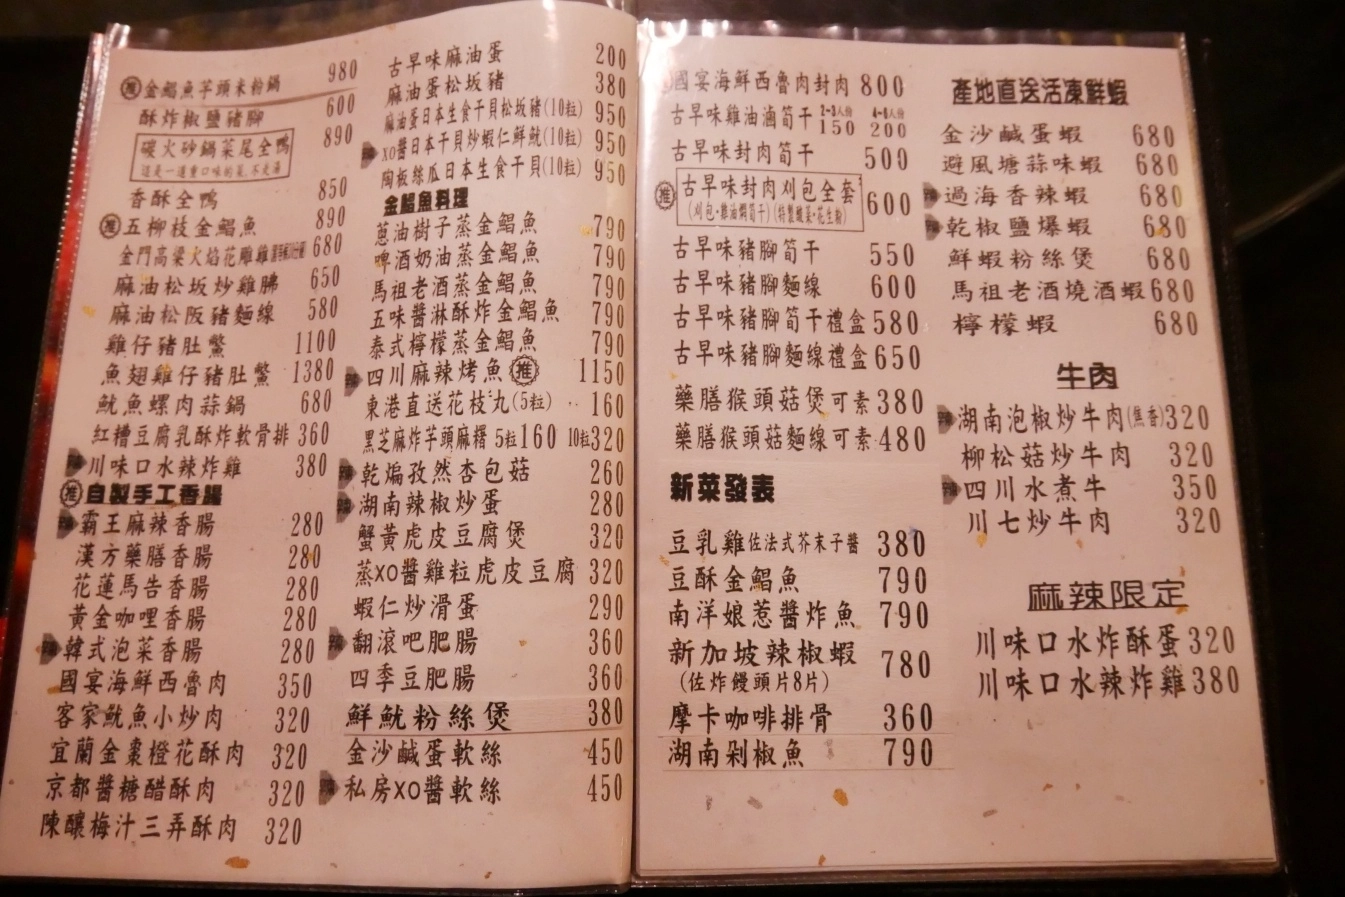 推 金鯧魚芋頭米粉鍋 980
酥炸椒鹽豬腳 600
碳火砂鍋菜尾全鴨 890
這是一道重口味的菜,不是湯
香酥全鴨 850
推 五柳枝金鯧魚 890
金門高粱火焰花雕雞 680
麻油松坂炒雞胇 650
麻油松阪豬麵線 580
雞仔豬肚鱉 1100
魚翅雞仔豬肚鱉 1380
魷魚螺肉蒜鍋 680
紅糟豆腐乳酥炸軟骨排 360
川味口水辣炸雞 380
推 自製手工香腸
霸王麻辣香腸 280
漢方藥膳香腸 280
花蓮馬告香腸 280
黃金咖哩香腸 280
韓式泡菜香腸 280
國宴海鮮西魯肉 350
客家魷魚小炒肉 320
宜蘭金棗橙花酥肉 320
京都醬糖醋酥肉 320
陳釀梅汁三弄酥肉 320
古早味麻油蛋 200
麻油蛋松坂豬 380
麻油蛋日本生食干貝松坂豬(10粒) 950
XO醬日本干貝炒蝦仁鮮魷(10粒) 950
陶板絲瓜日本生食干貝(10粒) 950
金鯧魚料理
蔥油樹子蒸金鯧魚 790
啤酒奶油蒸金鯧魚 790
馬祖老酒蒸金鯧魚 790
五味醬淋酥炸金鯧魚 790
泰式檸檬蒸金鯧魚 790
四川麻辣烤魚 推 1150
東港直送花枝丸(5粒) 160
黑芝麻炸芋頭麻糬 5粒160 10粒320
乾煸孜然杏包菇 260
湖南辣椒炒蛋 280
蟹黃虎皮豆腐煲 320
蒸XO醬雞粒虎皮豆腐 320
蝦仁炒滑蛋 290
翻滾吧肥腸 360
四季豆肥腸 360
鮮魷粉絲煲 380
金沙鹹蛋軟絲 450
私房XO醬軟絲 450
國宴海鮮西魯肉封肉 800
古早味雞油滷筍干 2-3人份 150 4-6人份 200
古早味封肉筍干 500
推 古早味封肉刈包全套 600
(刈包·雞油燜筍干)(特製酸菜·花生粉)
古早味豬腳筍干 550
古早味豬腳麵線 600
古早味豬腳筍干禮盒 580
古早味豬腳麵線禮盒 650
藥膳猴頭菇煲可素 380
藥膳猴頭菇麵線可素 480
新菜發表
豆乳雞佐法式芥末子醬 380
豆酥金鯧魚 790
南洋娘惹醬炸魚 790
新加坡辣椒蝦 780
(佐炸饅頭片8片)
摩卡咖啡排骨 360
湖南剁椒魚 790
產地直送活凍鮮蝦
金沙鹹蛋蝦 680
避風塘蒜味蝦 680
過海香辣蝦 680
乾椒鹽爆蝦 680
鮮蝦粉絲煲 680
馬祖老酒燒酒蝦 680
檸檬蝦 680
牛肉
湖南泡椒炒牛肉(焦香) 320
柳松菇炒牛肉 320
四川水煮牛 350
川七炒牛肉 320
麻辣限定
川味口水炸酥蛋 320
川味口水辣炸雞 380